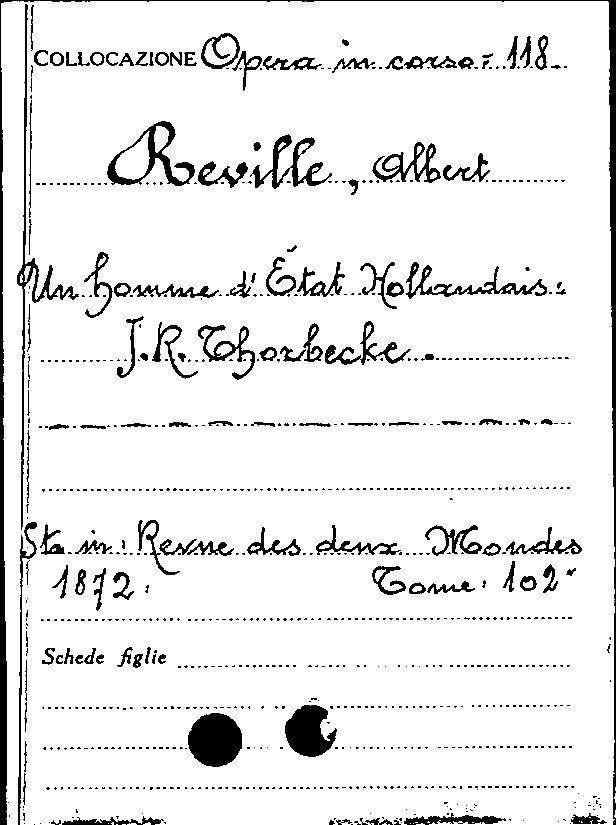 COLLOCAZIONE Opera in corso = 118
Reville, Albert
Un homme d'État Hollandais:
J.R. Thorbecke.
Sta in: Revue des deux Mondes
1872. Tome: 102°
Schede figlie